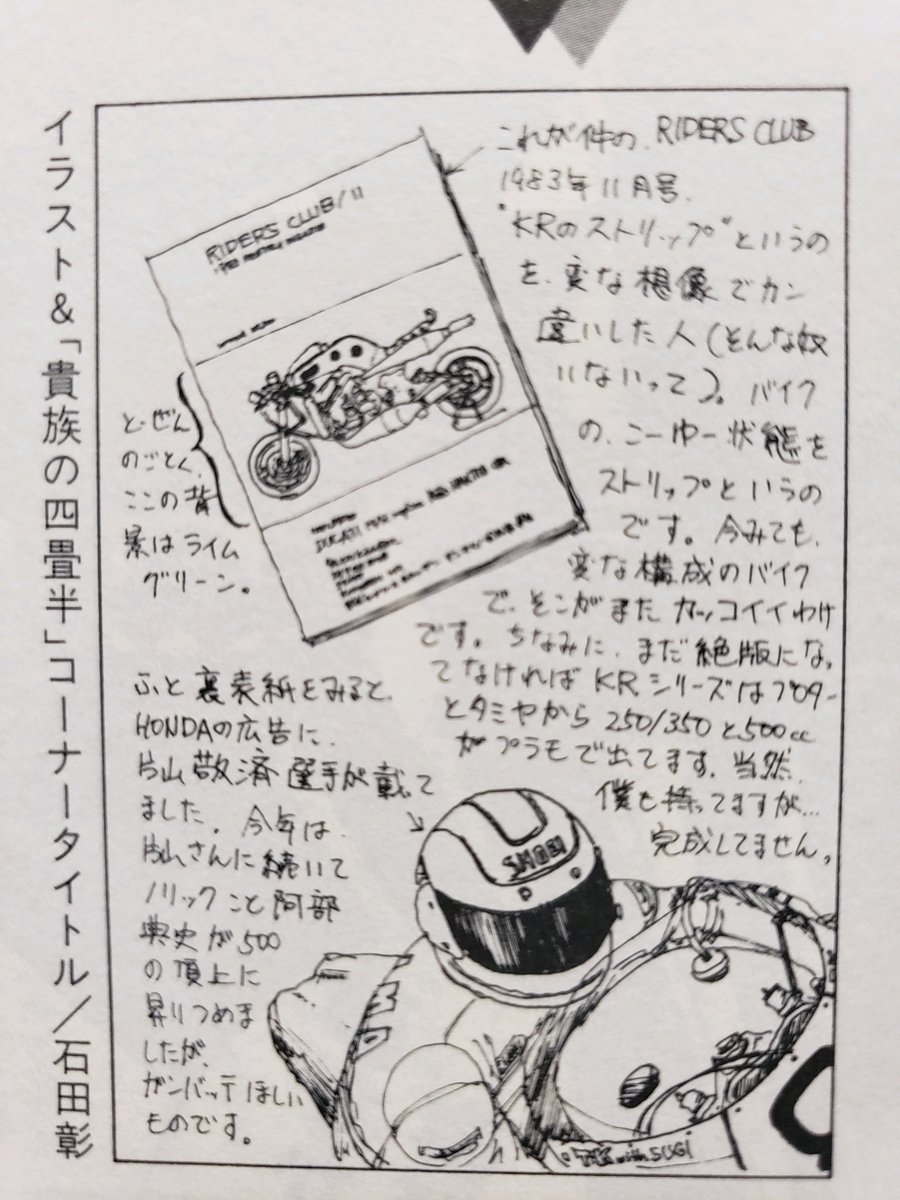 イラスト&「貴族の四畳半」コーナータイトル/石田彰
これが件の、RIDERS CLUB
1983年11月号.
"KRのストリップ"というの
を、変な想像でカン
違いした人(そんな奴
いないって)。バイク
の、こーゆー状態を
ストリップというの
です。今みても、
変な構成のバイク
で、そこがまたカッコイイわけ
です。ちなみに、まだ絶版になっ
てなければKRシリーズはプロター
とタミヤから250/350と500cc
がプラモで出てます。当然、
僕も持ってますが…
完成してません。
RIDERS CLUB/11
DUCATI
と-ぜん
のごとく、
ここの背
景はライム
グリーン。
ふと裏表紙をみると、
HONDAの広告に、
片山敬済選手が載って
ました。今年は、
片山さんに続いて
ノリックこと阿部
典史が500
の頂上に
昇りつめま
したが、
ガンバッテほしい
ものです。
SHOEI
TK with SUGI